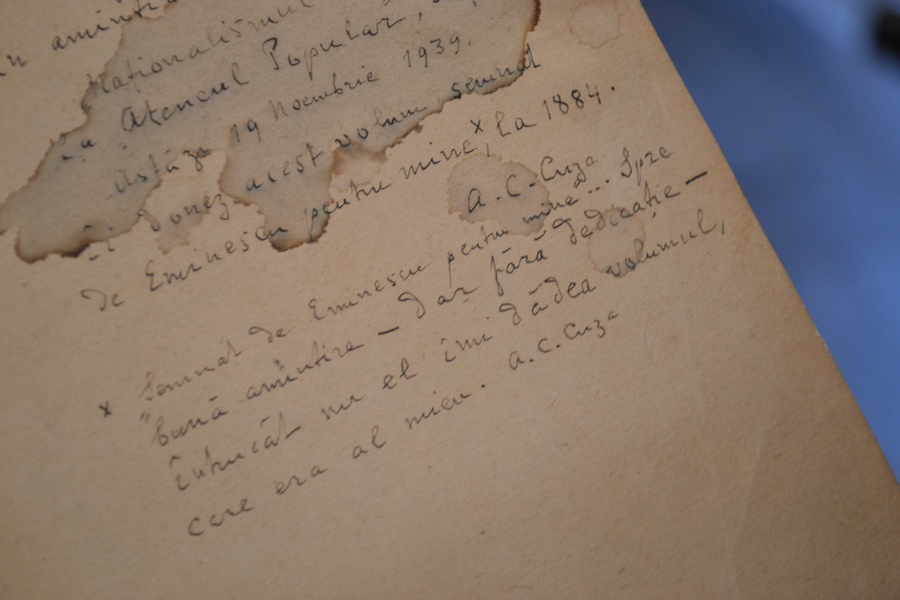 în aminti
Naționalismul
la Ateneul Popular,
Astăzi 19 Noembrie 1939.
îi donez acest volum semnat
de Eminescu pentru mine,ˣ la 1884.
A. C. Cuza
x Semnat de Eminescu pentru mine... "Spre
bună amintire" – dar fără dedicație –
întrucât nu el îmi dădea volumul,
care era al mieu. A. C. Cuza